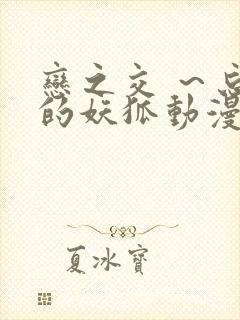 戀之交 ~ 忘
的妖狐動漫
夏冰寶